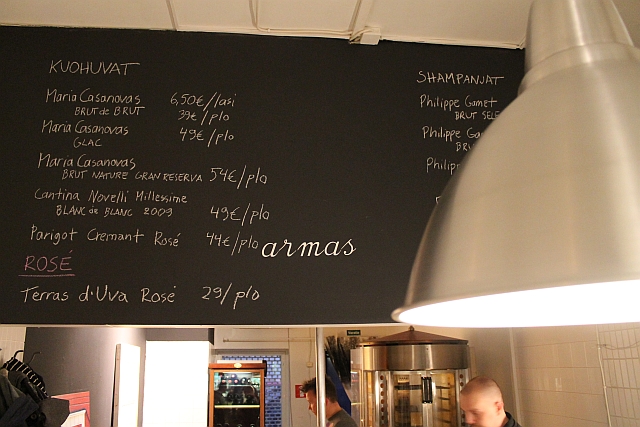 KUOHUVAT
Maria Casanovas 6,50€/lasi
BRUT de BRUT 39€/plo
Maria Casanovas 49€/plo
GLAC
Maria Casanovas
BRUT NATURE GRAN RESERVA 54€/plo
Cantina Novelli Millessime
BLANC de BLANC 2009 49€/plo
Parigot Cremant Rosé 44€/plo
armas
ROSÉ
Terras d'Uva Rosé 29/plo
SHAMPANJAT
Philippe Gamet
BRUT SELE
Philippe Ga
BR
Philip